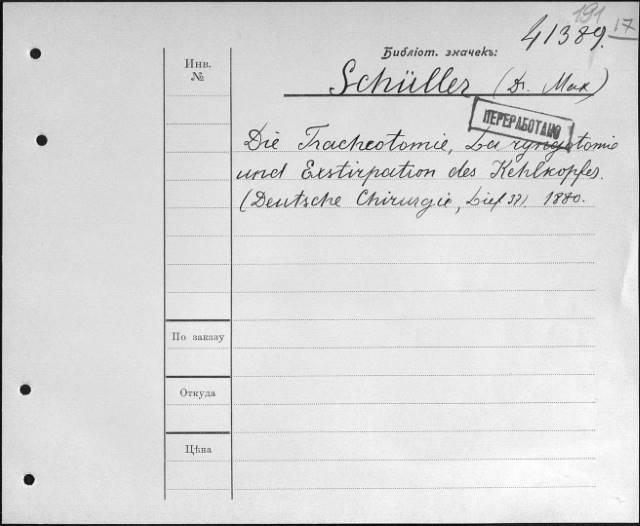 191
41389. 17
Библіот. значекъ:
Инв.
№
Schüller (Dr. Max)
ПЕРЕРАБОТАНО
Die Tracheotomie, Laryngotomie
und Exstirpation des Kehlkopfes.
(Deutsche Chirurgie, Lief 37). 1880.
По заказу
Откуда
Цѣна